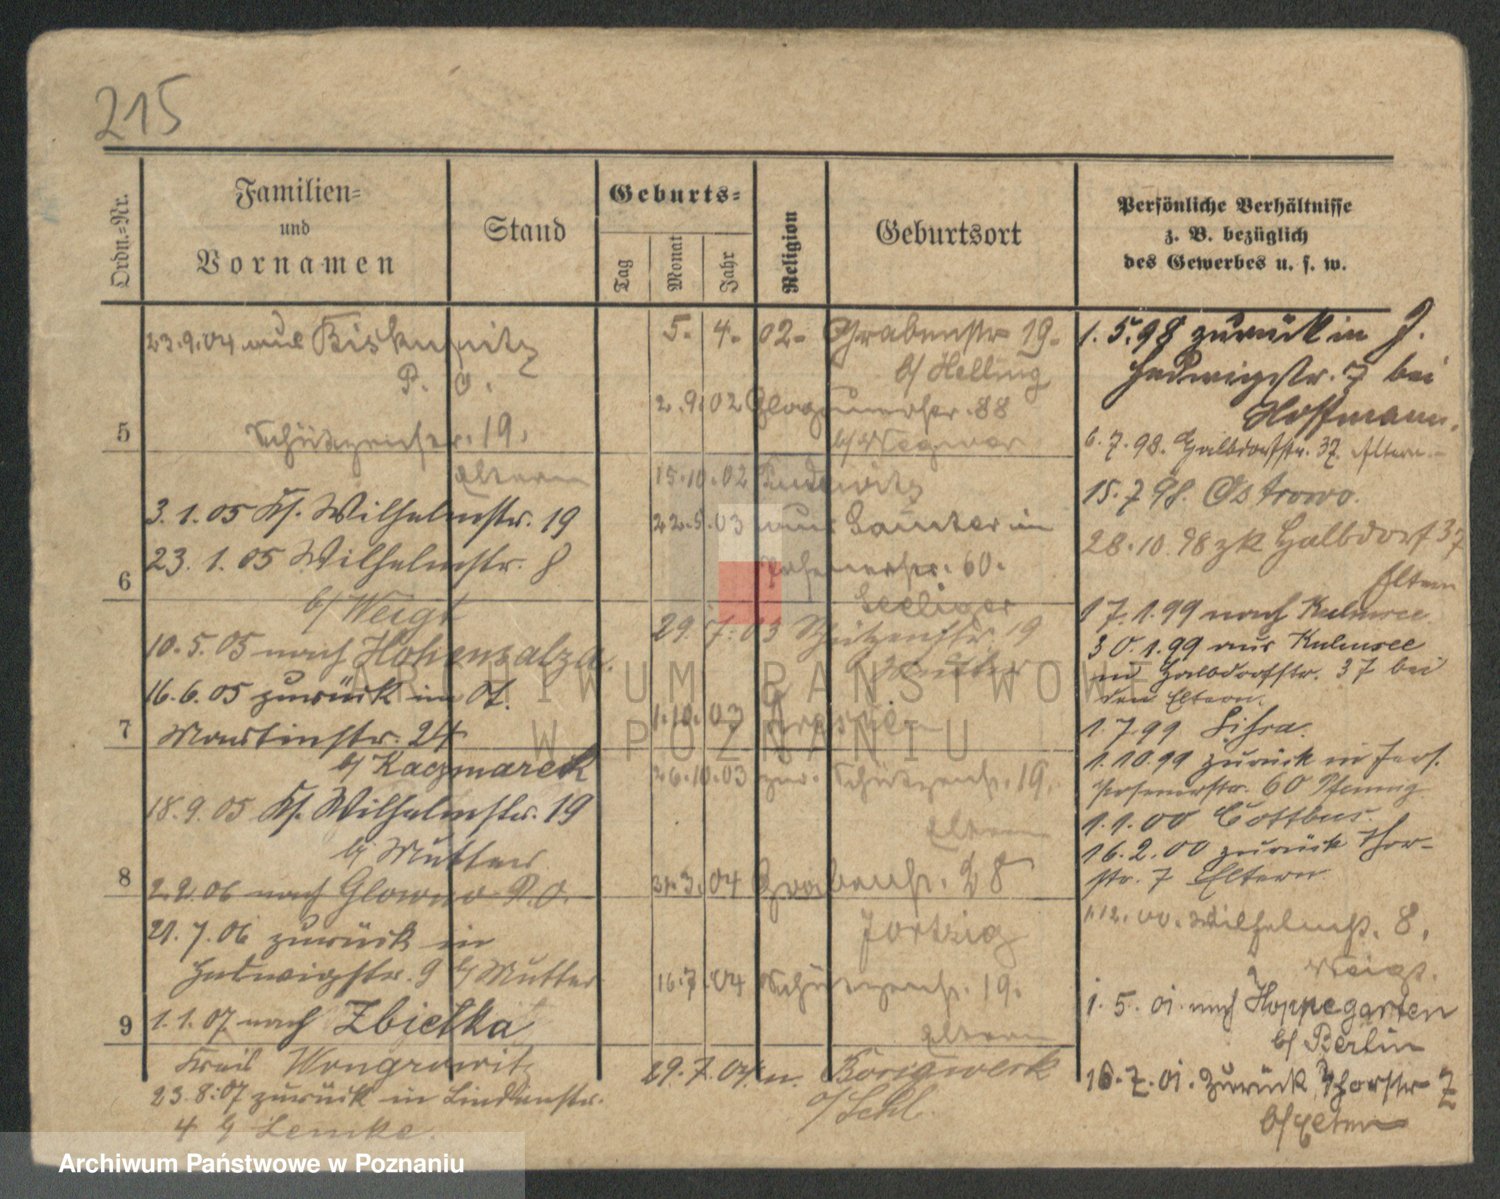 215
Ordn.-Nr.
Familien-
und
Vornamen
Stand
Geburts-
Tag
Monat
Jahr
Religion
Geburtsort
Persönliche Verhältnisse
z. B. bezüglich
des Gewerbes u. s. w.
23.9.04 aus
P. O.
5
Schützenstr. 19.
Eltern
3.1.05 Ks. Wilhelmstr. 19
23.1.05 Wilhelmstr. 8
6
b/ Weigt
10.5.05 nach Hohensalza.
16.6.05 zurück in O/.
7
Martinstr. 24
b/ Kaczmarek
18.9.05 Ks. Wilhelmstr. 19
b/ Mutter
8
2.2.06 nach Glowno P.O.
21.7.06 zurück in
Hedwigstr. 9 b/ Mutter
9
1.1.07 nach Zbietka
Kreis Wongrowitz
23.8.07 zurück in Lindenstr.
4 b/ Lemke.
5. 4. 02- Grabenstr 19.
b/ Helling
2.9.02 Glogauerstr. 88
b/ Wegner
15.10.02 Pudewitz
22.5.03 aus
Posenerstr. 60.
Seeliger
29.7.03 Schützenstr. 19
1.10.03
26.10.03 zur. Schützenstr. 19.
Eltern
31.3.04 Grabenstr. 28
Jortzig
16.7.04 Schützenstr. 19.
Eltern
29.7.04 n. Borsigwerk
o/Schl.
1.5.98 zurück in J.
Hedwigstr. 7 bei
Hoffmann.
6.7.98. Halbdorfstr. 37. Eltern.-
15.7.98. Ostrowo.
28.10.98 zk Halbdorf 37
Eltern
17.1.99 nach Kulmsee
30.1.99 aus Kulmsee
in Halbdorfstr. 37 bei
den Eltern.
1.7.99 Lissa.
1.10.99 zurück in Jers.
Posenerstr. 60 Pfennig
1.1.00 Cottbus.
16.2.00 zurück Thor-
str. 7 Eltern
1.12.00. Wilhelmstr. 8,
Weigt.
1.5.01. nach Hoppegarten
b/ Berlin
16.7.01. zurück Thorstr 7
b/ Eltern
ARCHIWUM PAŃSTWOWE
W POZNANIU
Archiwum Państwowe w Poznaniu